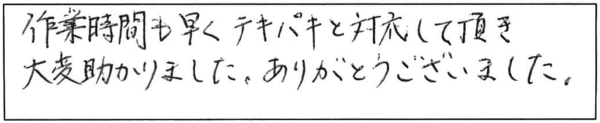 作業時間も早くテキパキと対応して頂き
大変助かりました。ありがとうございました。